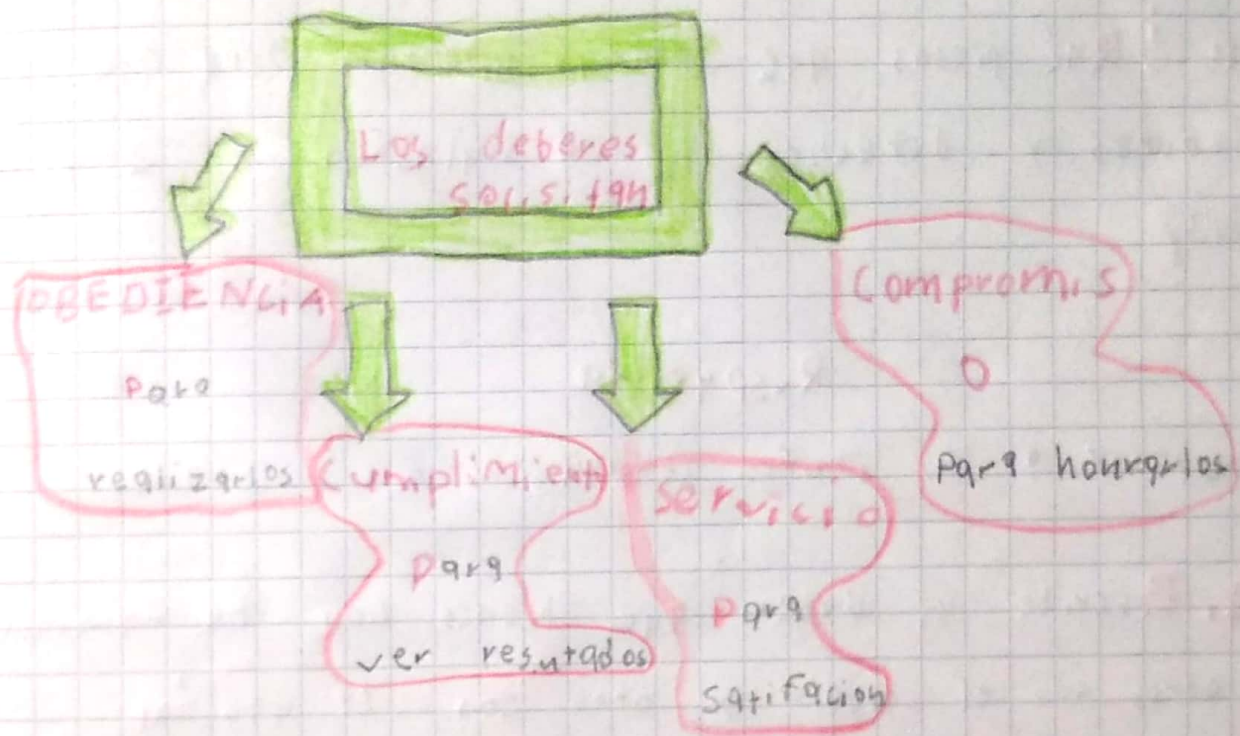 Los deberes
solisitan
OBEDIENCiA
Para
realizarlos
Cumplimiento
Para
ver resultados
Servicio
Para
Satifacion
Compromis
o
Para honrarlos